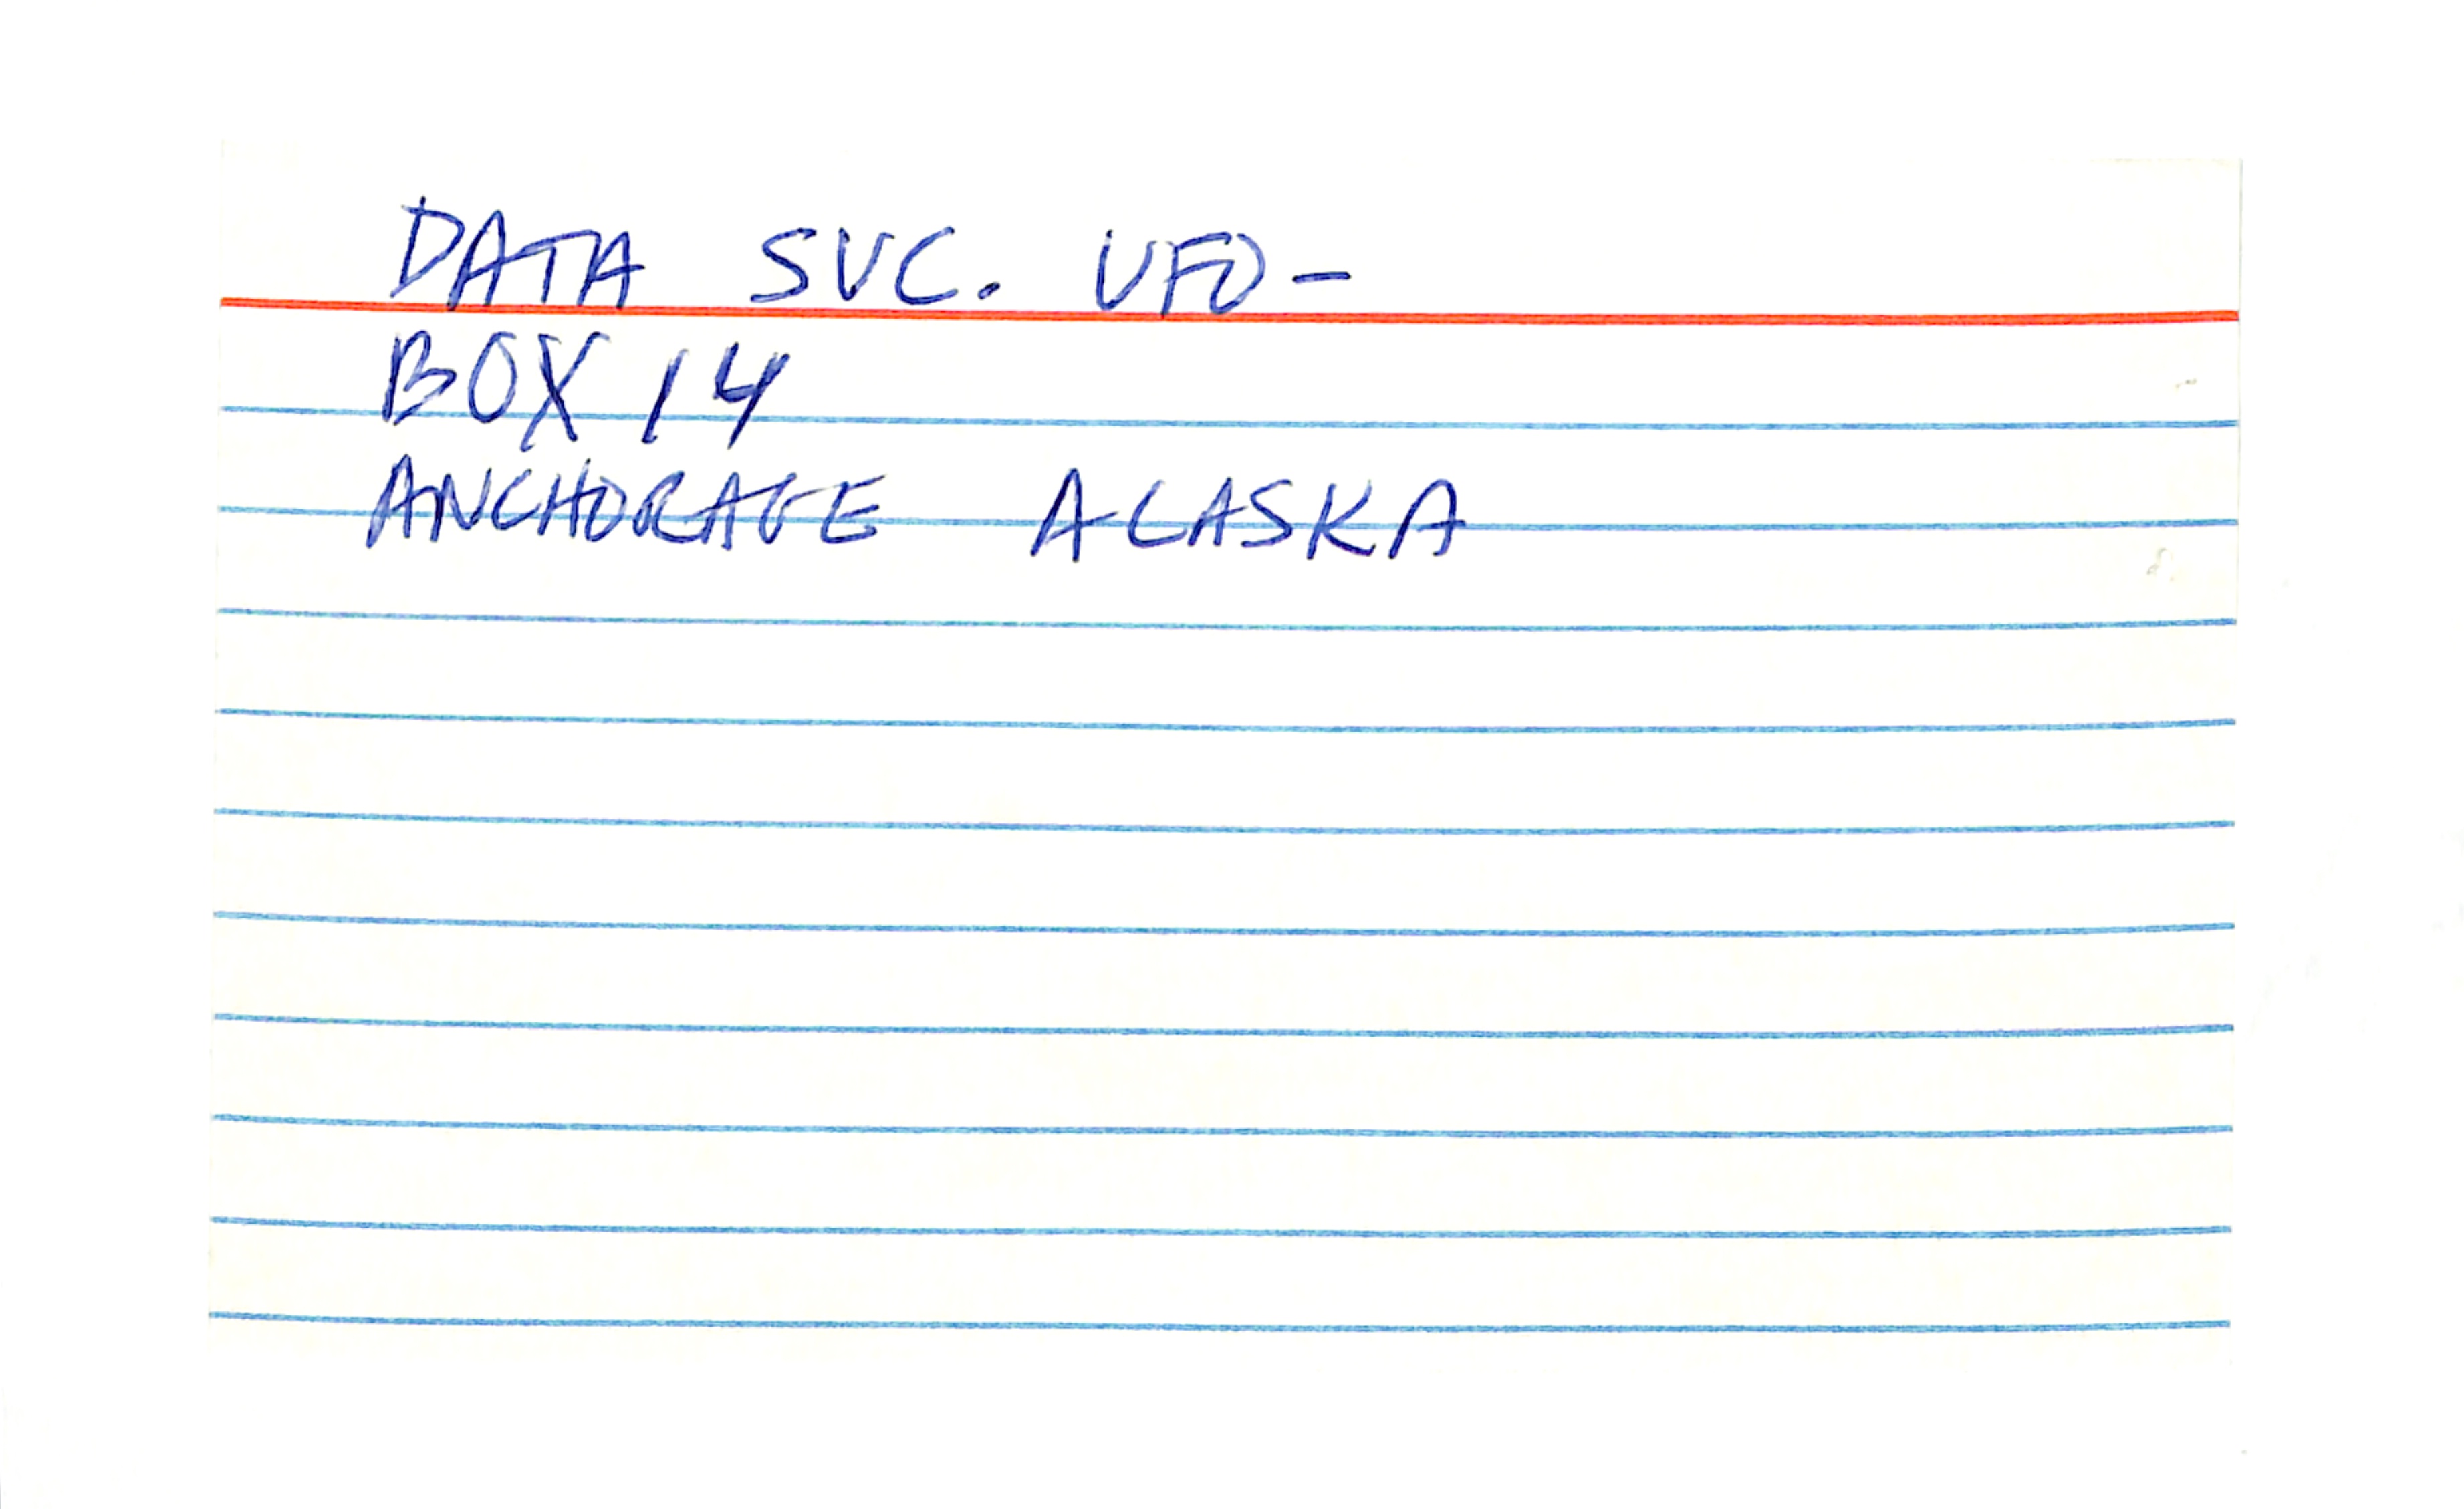 DATA SVC. UFO-
BOX 14
ANCHORAGE ALASKA